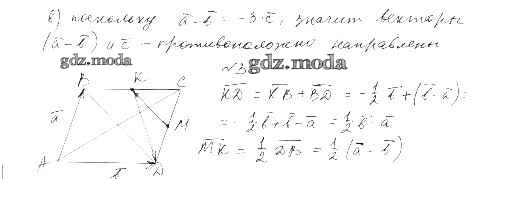 б) поскольку a̅ - b̅ = -3·c̅, значит векторы
(a̅ - b̅) и c̅ - противоположно направлены
gdz.moda
gdz.moda
№3
B K C
K̅D̅ = K̅B̅ + B̅D̅ = -½ b̅ + (b̅ - a̅) =
a̅
= -½ b̅ + b̅ - a̅ = ½ b̅ - a̅
M
M̅K̅ = ½ D̅B̅ = ½ (a̅ - b̅)
A
b̅ D